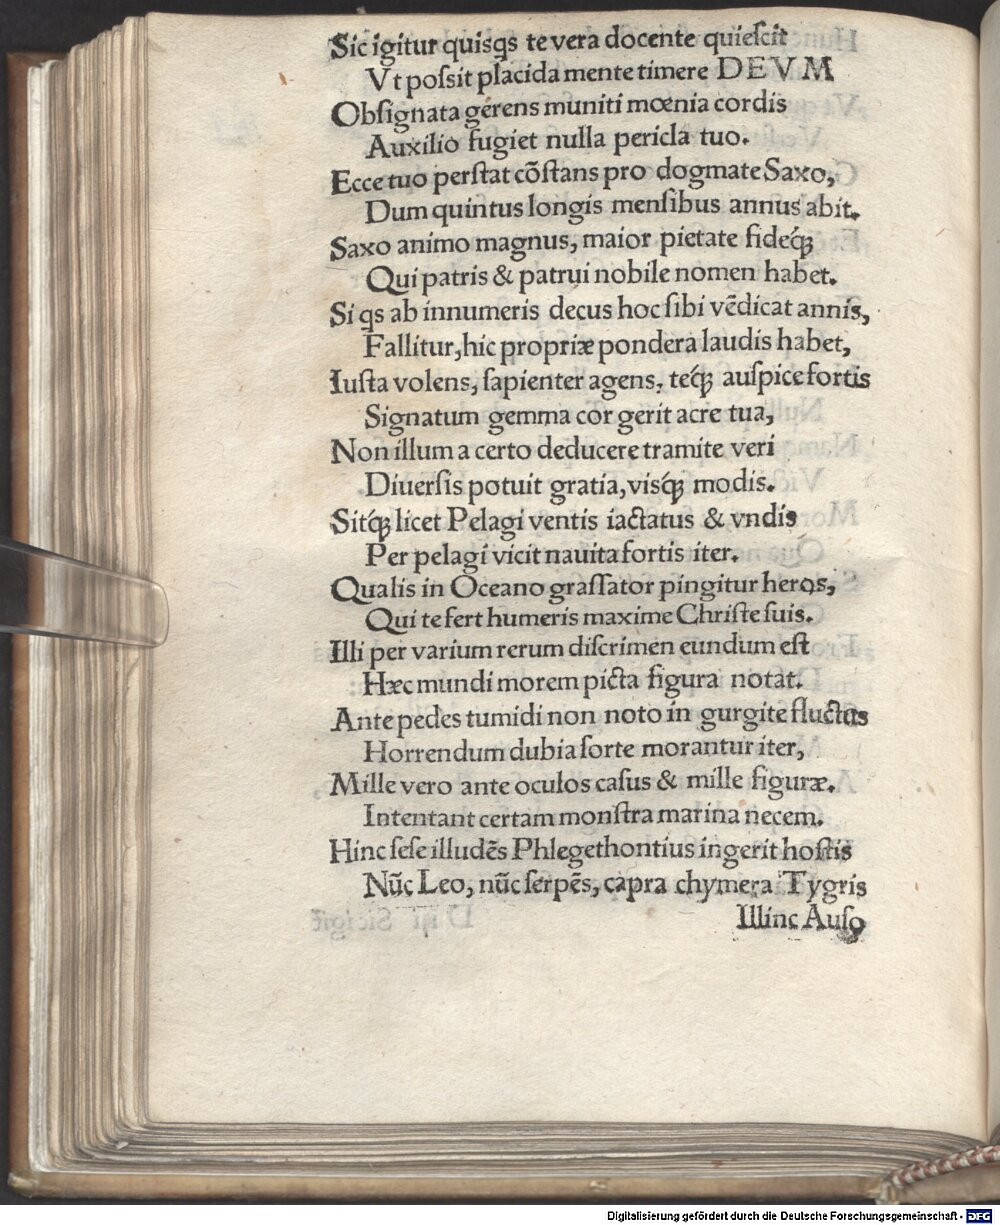 Sic igitur quisqs te vera docente quieſcit
Vt poſsit placida mente timere DEVM
Obſignata gerens muniti mœnia cordis
Auxilio fugiet nulla pericla tuo.
Ecce tuo perſtat cõſtans pro dogmate Saxo,
Dum quintus longis menſibus annus abit.
Saxo animo magnus, maior pietate fideq́ꝫ
Qui patris & patrui nobile nomen habet.
Si qs ab innumeris decus hoc ſibi vẽdicat annis,
Fallitur, hic propriæ pondera laudis habet,
Iuſta volens, ſapienter agens, teq́ꝫ auſpice fortis
Signatum gemma cor gerit acre tua,
Non illum a certo deducere tramite veri
Diuerſis potuit gratia, viſq́ꝫ modis.
Sitq́ꝫ licet Pelagi ventis iactatus & vndis
Per pelagi vicit nauita fortis iter.
Qualis in Oceano graſſator pingitur heros,
Qui te fert humeris maxime Chriſte ſuis.
Illi per varium rerum diſcrimen eundum eſt
Hæc mundi morem picta figura notat.
Ante pedes tumidi non noto in gurgite fluctus
Horrendum dubia ſorte morantur iter,
Mille vero ante oculos caſus & mille figuræ.
Intentant certam monſtra marina necem.
Hinc ſeſe illudẽs Phlegethontius ingerit hoſtis
Nũc Leo, nũc ſerpẽs, capra chymera Tygris
Illinc Auſo
Digitalisierung gefördert durch die Deutsche Forschungsgemeinschaft - DFG